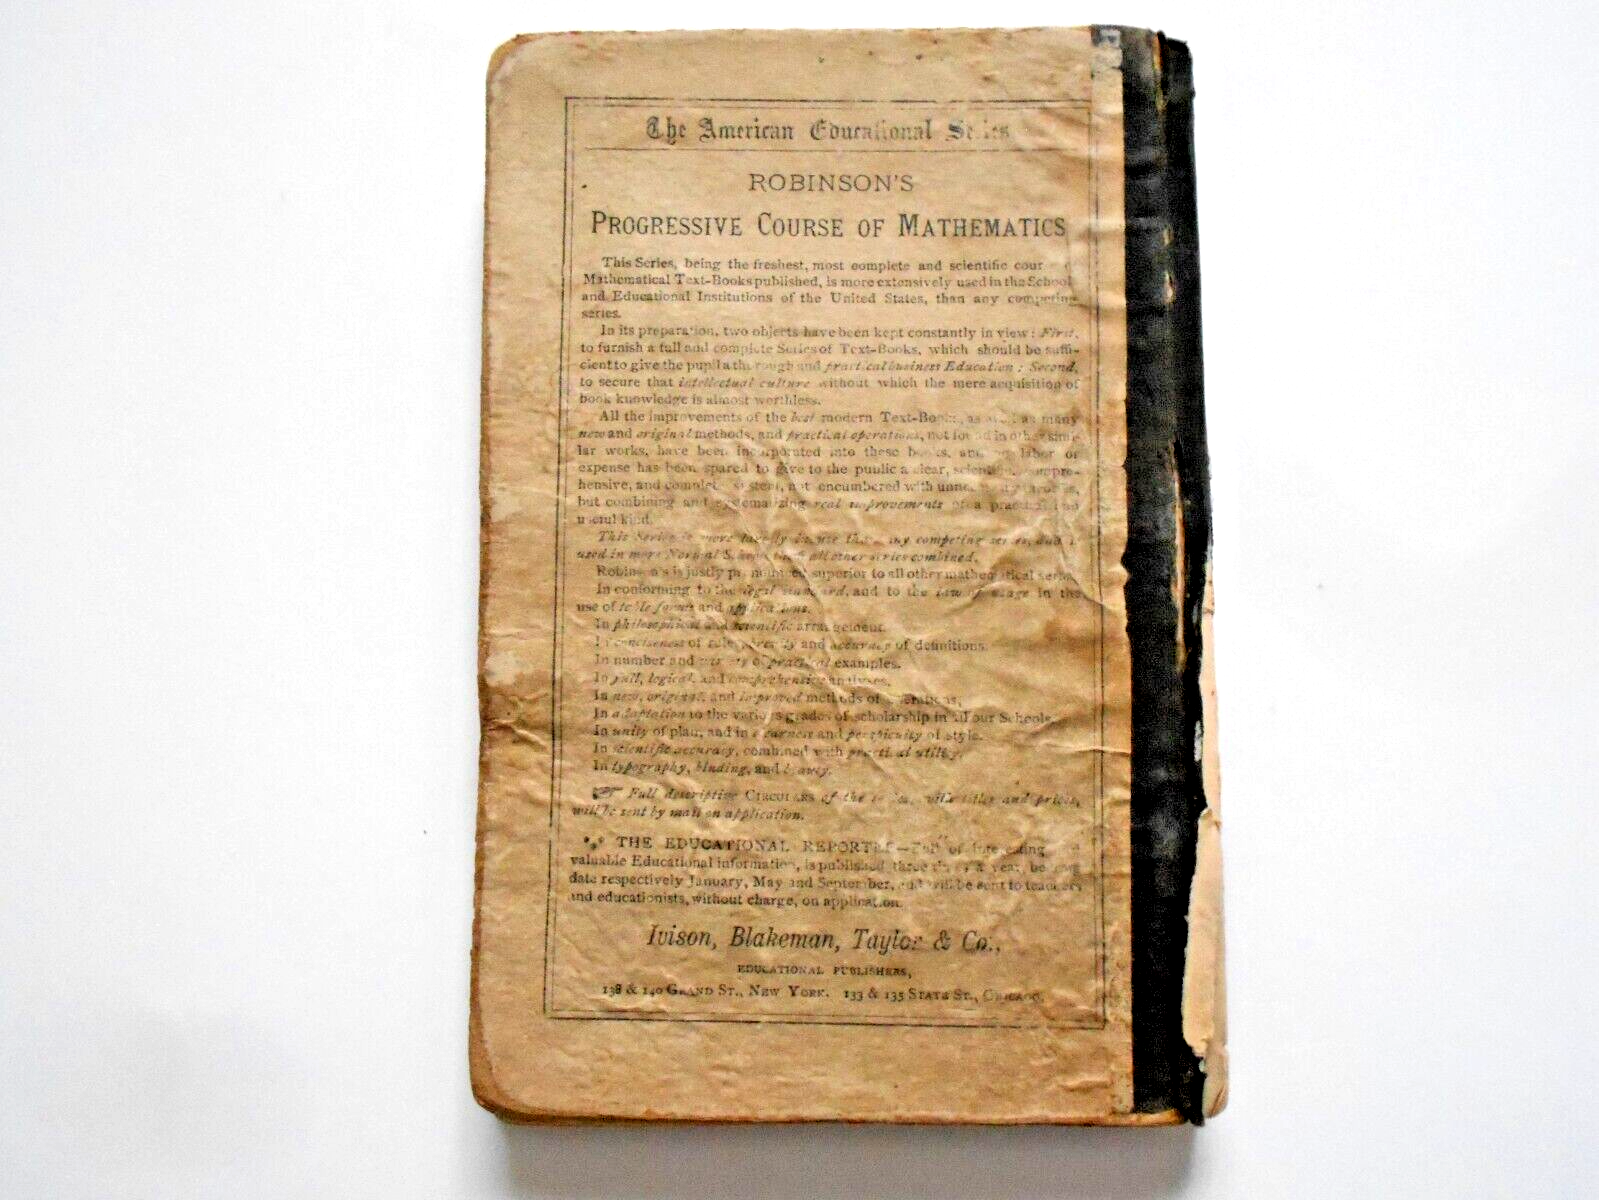 The American Educational Series
ROBINSON'S
PROGRESSIVE COURSE OF MATHEMATICS
This Series, being the freshest, most complete and scientific cour
Mathematical Text-Books published, is more extensively used in the School
and Educational Institutions of the United States, than any competing
series.
In its preparation, two objects have been kept constantly in view: First,
to furnish a full and complete Series of Text-Books, which should be suffi-
cient to give the pupil a thorough and practical business Education; Second,
to secure that intellectual culture without which the mere acquisition of
book knowledge is almost worthless.
All the improvements of the best modern Text-Books, as well as many
new and original methods, and practical operations, not found in other simi-
lar works, have been incorporated into these books, and no labor or
expense has been spared to give to the public a clear, scientific, compre-
hensive, and complete system, not encumbered with
but combining and systematizing real improvements of a practical and
useful kind.
This Series is more largely in use than any competing series, and is
used in more Normal Schools than all other series combined.
Robinson's is justly pronounced superior to all other mathematical series
In conforming to the legal standard, and to the law of usage in the
use of table forms and applications.
In philosophical and scientific arrangement.
In conciseness of rule, brevity and accuracy of definitions.
In number and variety of practical examples.
In full, logical, and comprehensive analyses.
In new, original, and improved methods of operations.
In adaptation to the various grades of scholarship in all our Schools.
In unity of plan, and in clearness and perspicuity of style.
In scientific accuracy, combined with practical utility.
In typography, binding, and beauty.
☞ Full descriptive CIRCULARS of the series, with titles and prices,
will be sent by mail on application.
⁂ THE EDUCATIONAL REPORTER—Full of interesting
valuable Educational information, is published three times a year, bearing
date respectively January, May and September, and will be sent to teachers
and educationists, without charge, on application.
Ivison, Blakeman, Taylor & Co.,
EDUCATIONAL PUBLISHERS,
138 & 140 GRAND ST., NEW YORK. 133 & 135 STATE ST., CHICAGO.